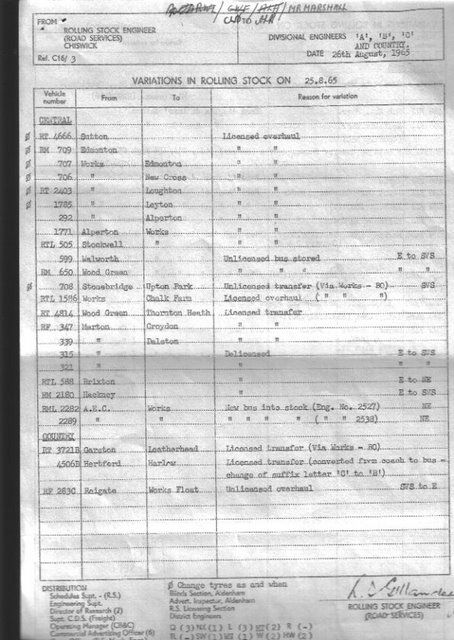 MR MARSHALL
FROM
ROLLING STOCK ENGINEER
(ROAD SERVICES)
CHISWICK
Ref. C16/3
DIVISIONAL ENGINEERS 'A', 'B', 'C'
AND COUNTRY.
DATE 26th August, 1965
VARIATIONS IN ROLLING STOCK ON 25.8.65
Vehicle number From To Reason for variation
CENTRAL
Ø RT 4666 Sutton Licensed overhaul
Ø RM 709 Edmonton " "
Ø 707 Works Edmonton " "
Ø 706 " New Cross " "
Ø RT 2403 " Loughton " "
Ø 1785 " Leyton " "
292 " Alperton " "
1771 Alperton Works " "
RTL 505 Stockwell " " "
599 Walworth Unlicensed bus stored E to SVS
RM 650 Wood Green " " " " "
Ø 708 Stonebridge Upton Park Unlicensed transfer (Via Works - BO) SVS
RTL 1586 Works Chalk Farm Licensed overhaul ( " " " )
RT 4814 Wood Green Thornton Heath Licensed transfer
RF 347 Merton Croydon "
339 " Dalston "
315 " Delicensed E to SVS
321 " " " "
RTL 588 Brixton " E to NE
RM 2180 Hackney " E to SVS
RML 2282 A.E.C. Works New bus into stock (Eng. No. 2527) NE
2289 " " " " " " ( " " 2538) NE
COUNTRY
RT 3721B Garston Leatherhead Licensed transfer (Via Works - BO)
4506B Hertford Harlow Licensed transfer (converted from coach to bus -
change of suffix letter 'C' to 'B')
RF 283C Reigate Works Float Unlicensed overhaul SVS to E
DISTRIBUTION
Schedules Supt. - (R.S.)
Engineering Supt.
Director of Research (2)
Supt. C.D.S. (Freight)
Operating Manager (CB&C)
Commercial Advertising Officer (6)
Ø Change tyres as and when
Blinds Section, Aldenham
Advert. Inspector, Aldenham
R.S. Licensing Section
District Engineers
ROLLING STOCK ENGINEER
(ROAD SERVICES)